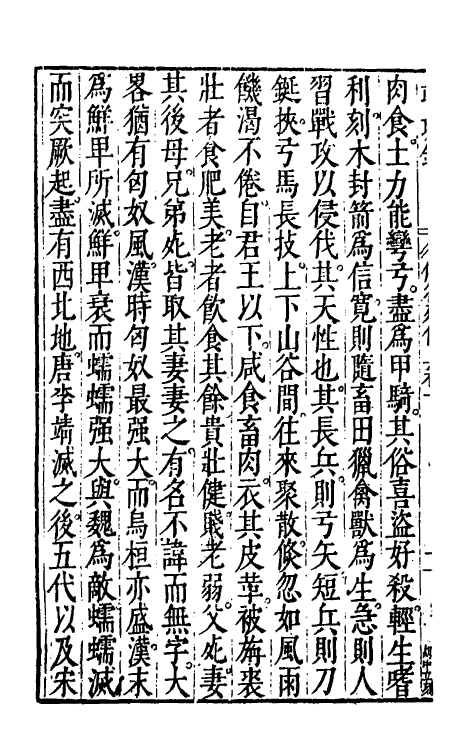 肉食士力能彎弓盡為甲騎其俗喜盜好殺輕生嗜
利刻木封箭為信寬則隨畜田獵禽獸為生急則人
習戰攻以侵伐其天性也其長兵則弓矢短兵則刀
鋋挾弓馬長技上下山谷間往來聚散倐忽如風雨
饑渴不倦自君王以下咸食畜肉衣其皮革被旃裘
壯者食肥美老者飲食其餘貴壯健賤老弱父死妻
其後母兄弟死皆取其妻妻之有名不諱而無字大
畧猶有匈奴風漢時匈奴最强大而烏桓亦盛漢末
為鮮卑所滅鮮卑衰而蠕蠕强大與魏為敵蠕蠕滅
而突厥起盡有西北地唐李靖滅之後五代以及宋